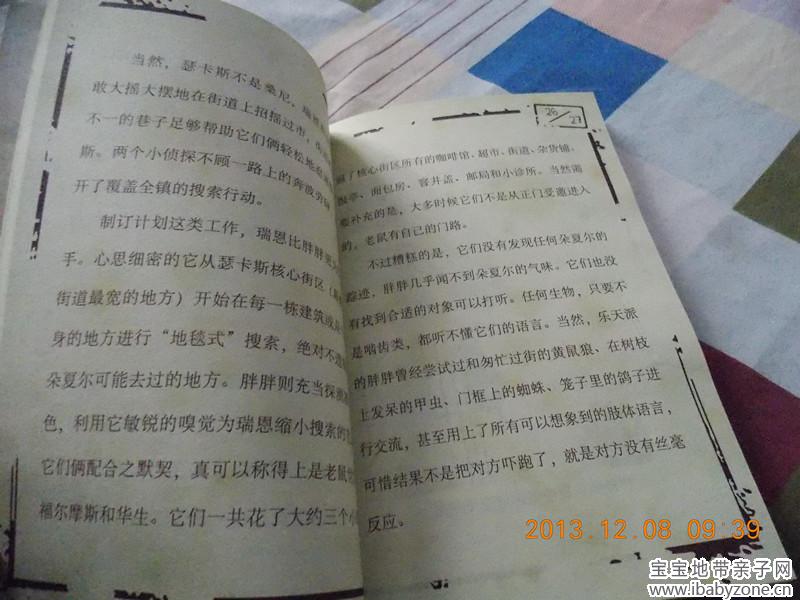 当然，瑟卡斯不是桑尼，瑞恩
敢大摇大摆地在街道上招摇过市，
不一的巷子足够帮助它们俩轻松地
斯。两个小侦探不顾一路上的奔波劳
开了覆盖全镇的搜索行动。
制订计划这类工作，瑞恩比胖胖
手。心思细密的它从瑟卡斯核心街区（
街道最宽的地方）开始在每一栋建筑或
身的地方进行“地毯式”搜索，绝对不
朵夏尔可能去过的地方。胖胖则充当探测
色，利用它敏锐的嗅觉为瑞恩缩小搜索的
它们俩配合之默契，真可以称得上是老鼠
福尔摩斯和华生。它们一共花了大约三个小
26/27
核心街区所有的咖啡馆、超市、街道、杂货铺、
饭亭、面包房、窨井盖、邮局和小诊所。当然需
要补充的是，大多时候它们不是从正门受邀进入
的。老鼠有自己的门路。
不过糟糕的是，它们没有发现任何朵夏尔的
踪迹，胖胖几乎闻不到朵夏尔的气味。它们也没
有找到合适的对象可以打听。任何生物，只要不
是啮齿类，都听不懂它们的语言。当然，乐天派
的胖胖曾经尝试过和匆忙过街的黄鼠狼、在树枝
上发呆的甲虫、门框上的蜘蛛、笼子里的鸽子进
行交流，甚至用上了所有可以想象到的肢体语言，
可惜结果不是把对方吓跑了，就是对方没有丝毫
反应。
2013.12.08 09:39
宝宝地带亲子网
www.ibabyzone.cn